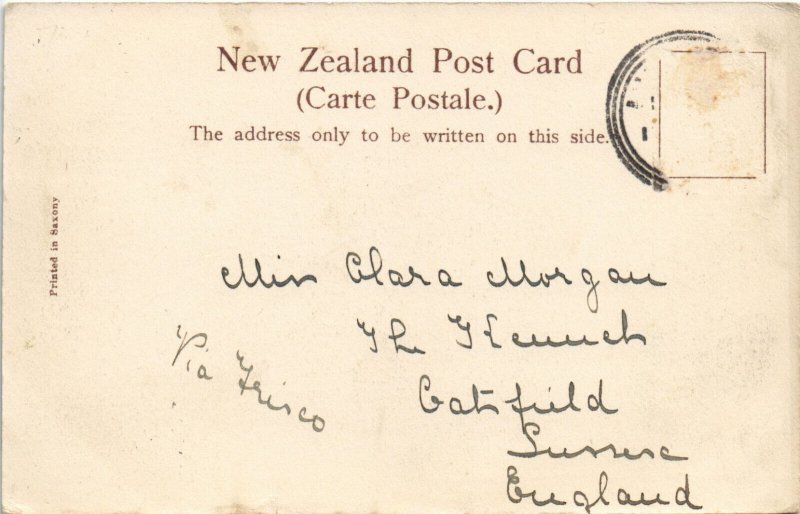 New Zealand Post Card
(Carte Postale.)
The address only to be written on this side.
Printed in Saxony
Miss Clara Morgan
The
Catsfield
Sussex
England
Via Frisco